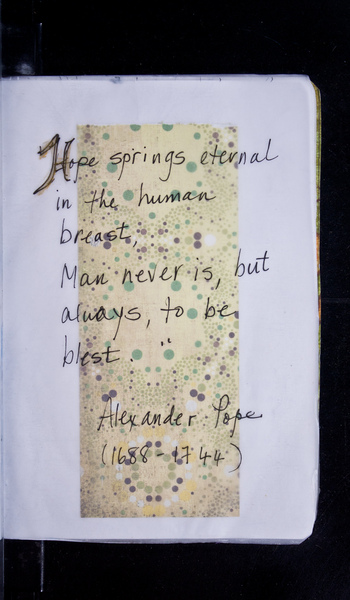 Hope springs eternal
in the human
breast,
Man never is, but
always, to be
blest. "
Alexander Pope
(1688-1744)